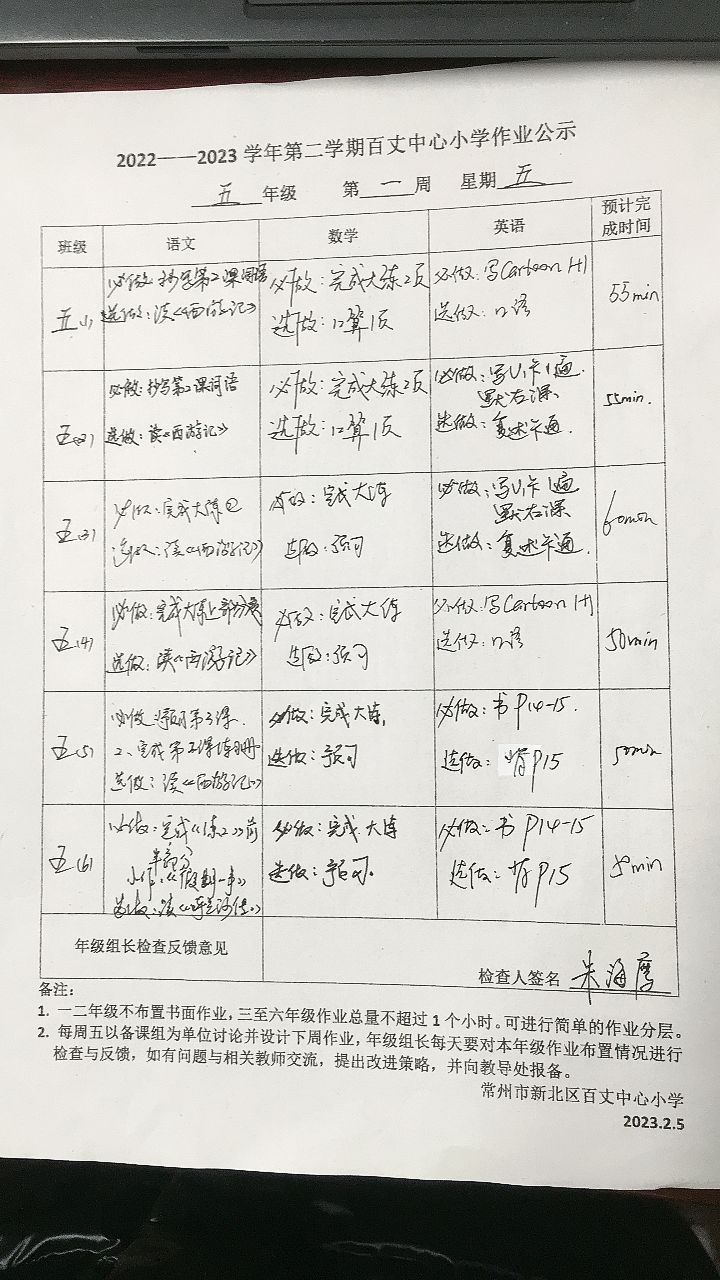 2022——2023 学年第二学期百丈中心小学作业公示
五 年级 第 一 周 星期 五
班级 语文 数学 英语 预计完成时间
五(1)
必做:抄写第2课词语
选做:读《西游记》
必做:完成大练2页
选做:口算1页
必做:写Cartoon 1H
选做:口语
55min
五(2)
必做:抄写第2课词语
选做:读《西游记》
必做:完成大练2页
选做:口算1页
必做:写U1卡1遍
默右课
选做:复述卡通.
55min.
五(3)
必做:完成大练②
选做:读《西游记》
必做:完成大练
选做:预习
必做:写U1卡1遍
默右课
选做:复述卡通.
60min
五(4)
必做:完成大练上部分
选做:读《西游记》
必做:完成大练
选做:预习
必做:写Cartoon 1H
选做:口语
50min
五(5)
必做:预习第3课.
2、完成第2课练习册
选做:读《西游记》
必做:完成大练,
选做:预习
必做:书P14-15.
选做:背P15
50min
五(6)
必做:完成《练2》前
半部分
选做:读
必做:完成大练
选做:预习.
必做:书P14-15
选做:背P15
50min
年级组长检查反馈意见
检查人签名 朱海鹰
备注:
1. 一二年级不布置书面作业,三至六年级作业总量不超过1个小时。可进行简单的作业分层。
2. 每周五以备课组为单位讨论并设计下周作业,年级组长每天要对本年级作业布置情况进行
检查与反馈,如有问题与相关教师交流,提出改进策略,并向教导处报备。
常州市新北区百丈中心小学
2023.2.5